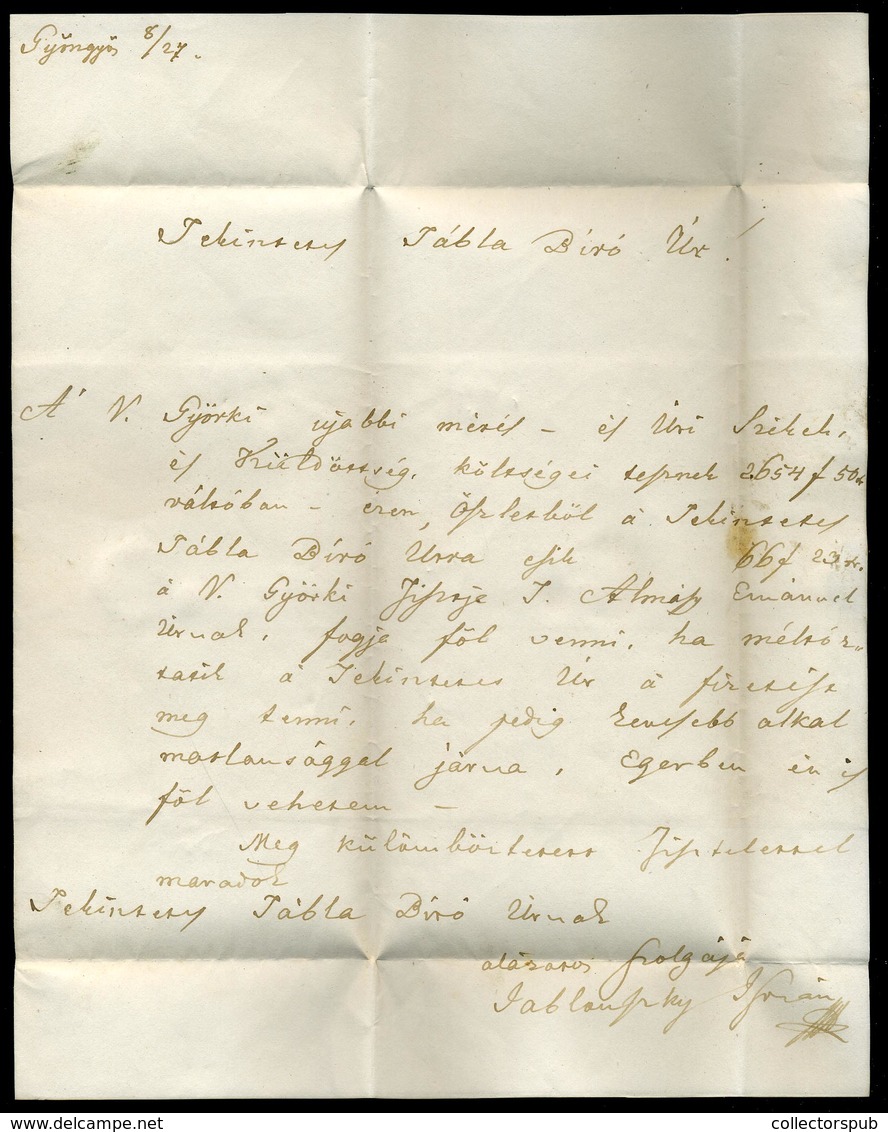 Gyöngyös 8/27.
Tekintetes Tábla Bíró Úr!
A' V. Györki ujabbi mérés – és Úri Székek,
és Küldöttség, költségei tesznek 2654 f 50 x
váltóban – ezen, öszletböl a Tekintetes
Tábla Bíró Urra esik 66 f 23 x.
a V. Györki Tisztje T. Almásy Emánuel
Úrnak, fogja föl venni, ha méltóz„
tatik a' Tekintetes Úr a fizetést
meg tenni, ha pedig kevesebb alkal
matlansággal járna, Egerben én is
föl vehetem –
Meg külömböztetett tisztelettel
maradok
Tekintetes Tábla Bíró Úrnak
alázatos szolgája
Jablonszky István
collectorspub
www.delcampe.net